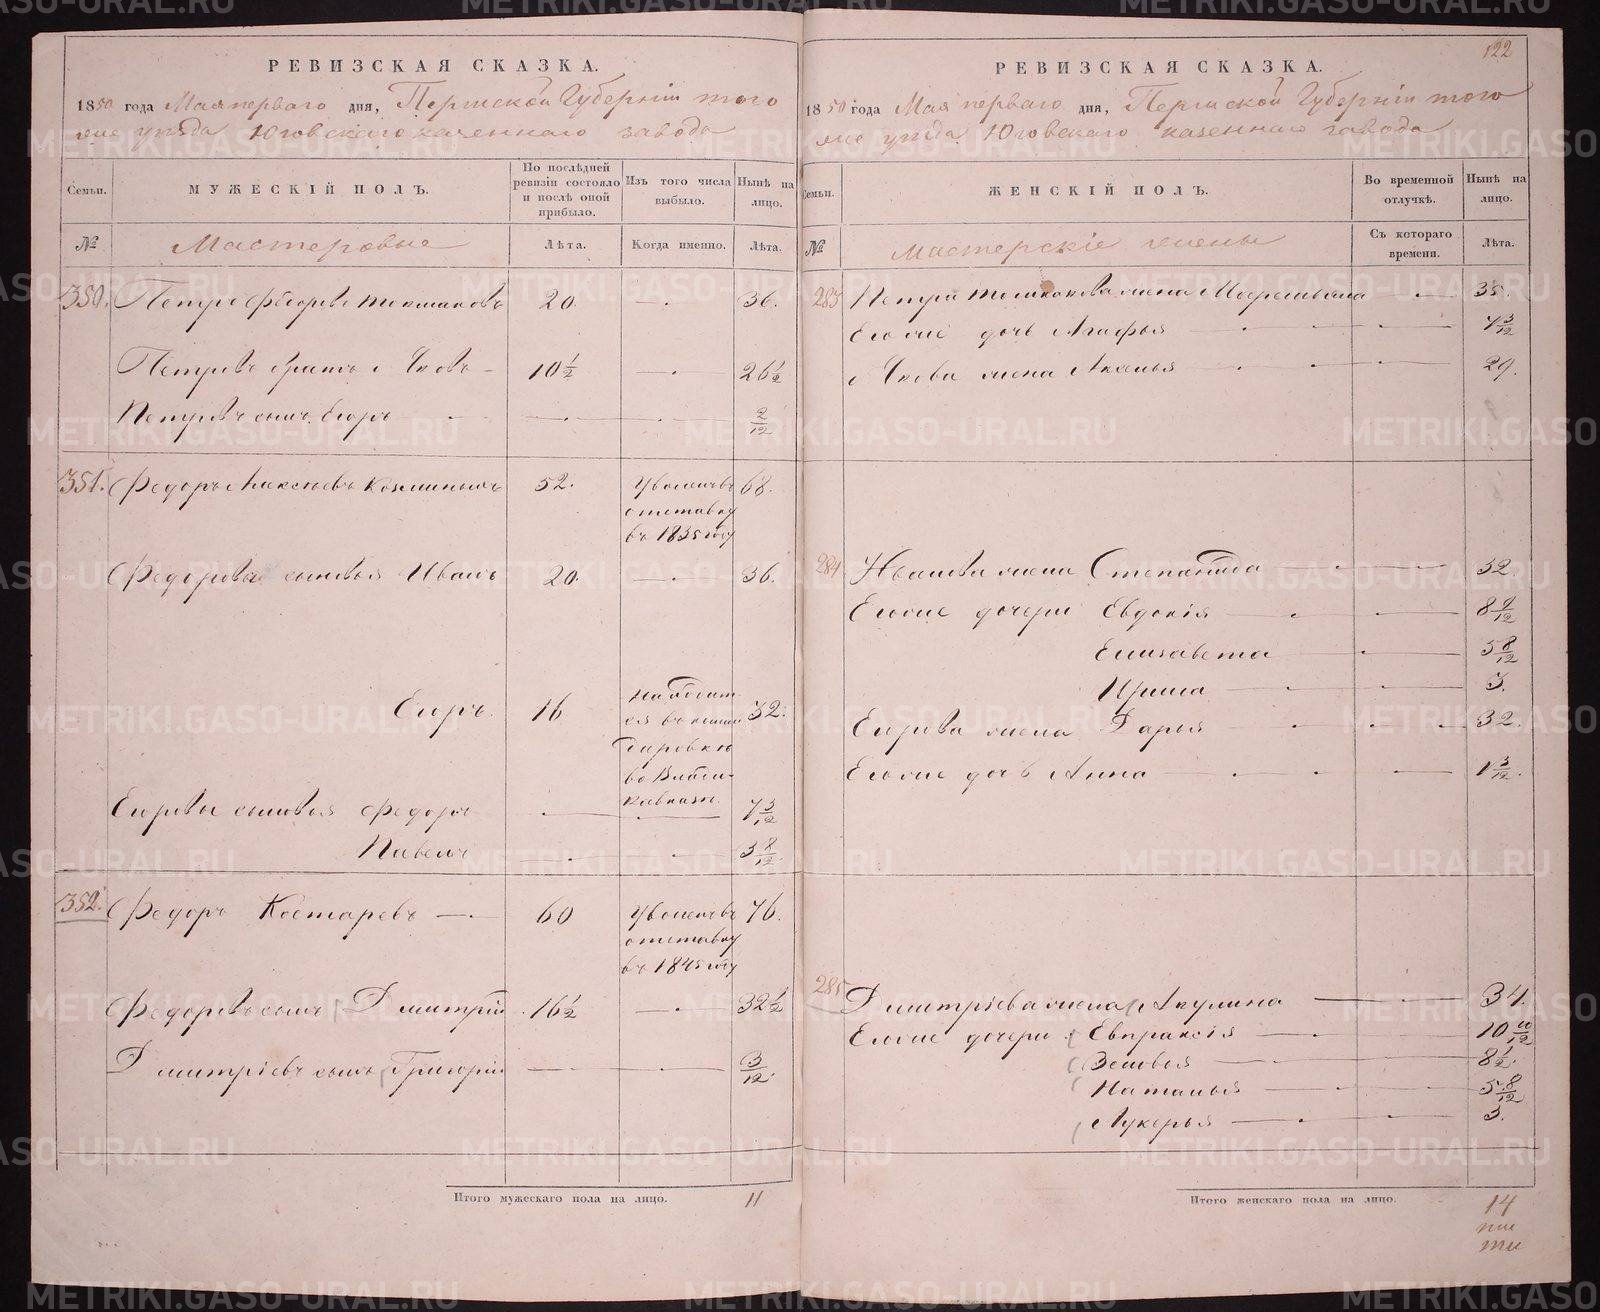 РЕВИЗСКАЯ СКАЗКА.
1850 года Мая перваго дня, Пермской Губерніи того
же уезда Юговскаго казеннаго завода
Семьи.
МУЖЕСКІЙ ПОЛЪ.
По послѣдней ревизіи состояло и послѣ оной прибыло.
Изъ того числа выбыло.
Нынѣ на лицо.
№
Мастеровые
Лѣта.
Когда именно.
Лѣта.
350. Петръ Федоровъ Токмаковъ 20. 36.
Петровъ братъ Яковъ 10 1/2 26 1/2
Петровъ сынъ Егоръ 2/12
351. Федоръ Алексѣевъ 52. Уволенъ въ 68.
отставку
въ 1835 году
Федоровы сыновья Иванъ 20. 36.
Егоръ. 16 Находит
ся въ коман 32.
дировке
во Влади
кавказе.
Егоровы сыновья Федоръ 7 3/12
Павелъ 3 8/12
352. Федоръ Костаревъ 60 Уволенъ въ 76.
отставку
въ 1845 году
Федоровъ сынъ Дмитрій 16 1/2 32 1/2
Дмитріевъ сынъ Григорій 3/12
Итого мужескаго пола на лицо. 11
122
РЕВИЗСКАЯ СКАЗКА.
1850 года Мая перваго дня, Пермской Губерніи того
же уезда Юговскаго казеннаго завода
Семьи.
ЖЕНСКІЙ ПОЛЪ.
Во временной отлучкѣ.
Нынѣ на лицо.
№
Мастерскіе жены
Съ котораго времени.
Лѣта.
283 Петра Токмакова жена 35.
Его же дочь Агафья 7 3/12
Якова жена Аксинья 29.
284 Иванова жена Степанида 32.
Его же дочери Евдокія 8 9/12
Елизавета 5 8/12
Ирина 3.
Егорова жена Дарья 32.
Его же дочь Анна 1 3/12.
285 Дмитріева жена Акулина 34.
Его же дочери Евпраксія 10 10/12
8 1/2.
Наталья 5 8/12
Лукерья 3.
Итого женскаго пола на лицо. 14
METRIKI.GASO-URAL.RU